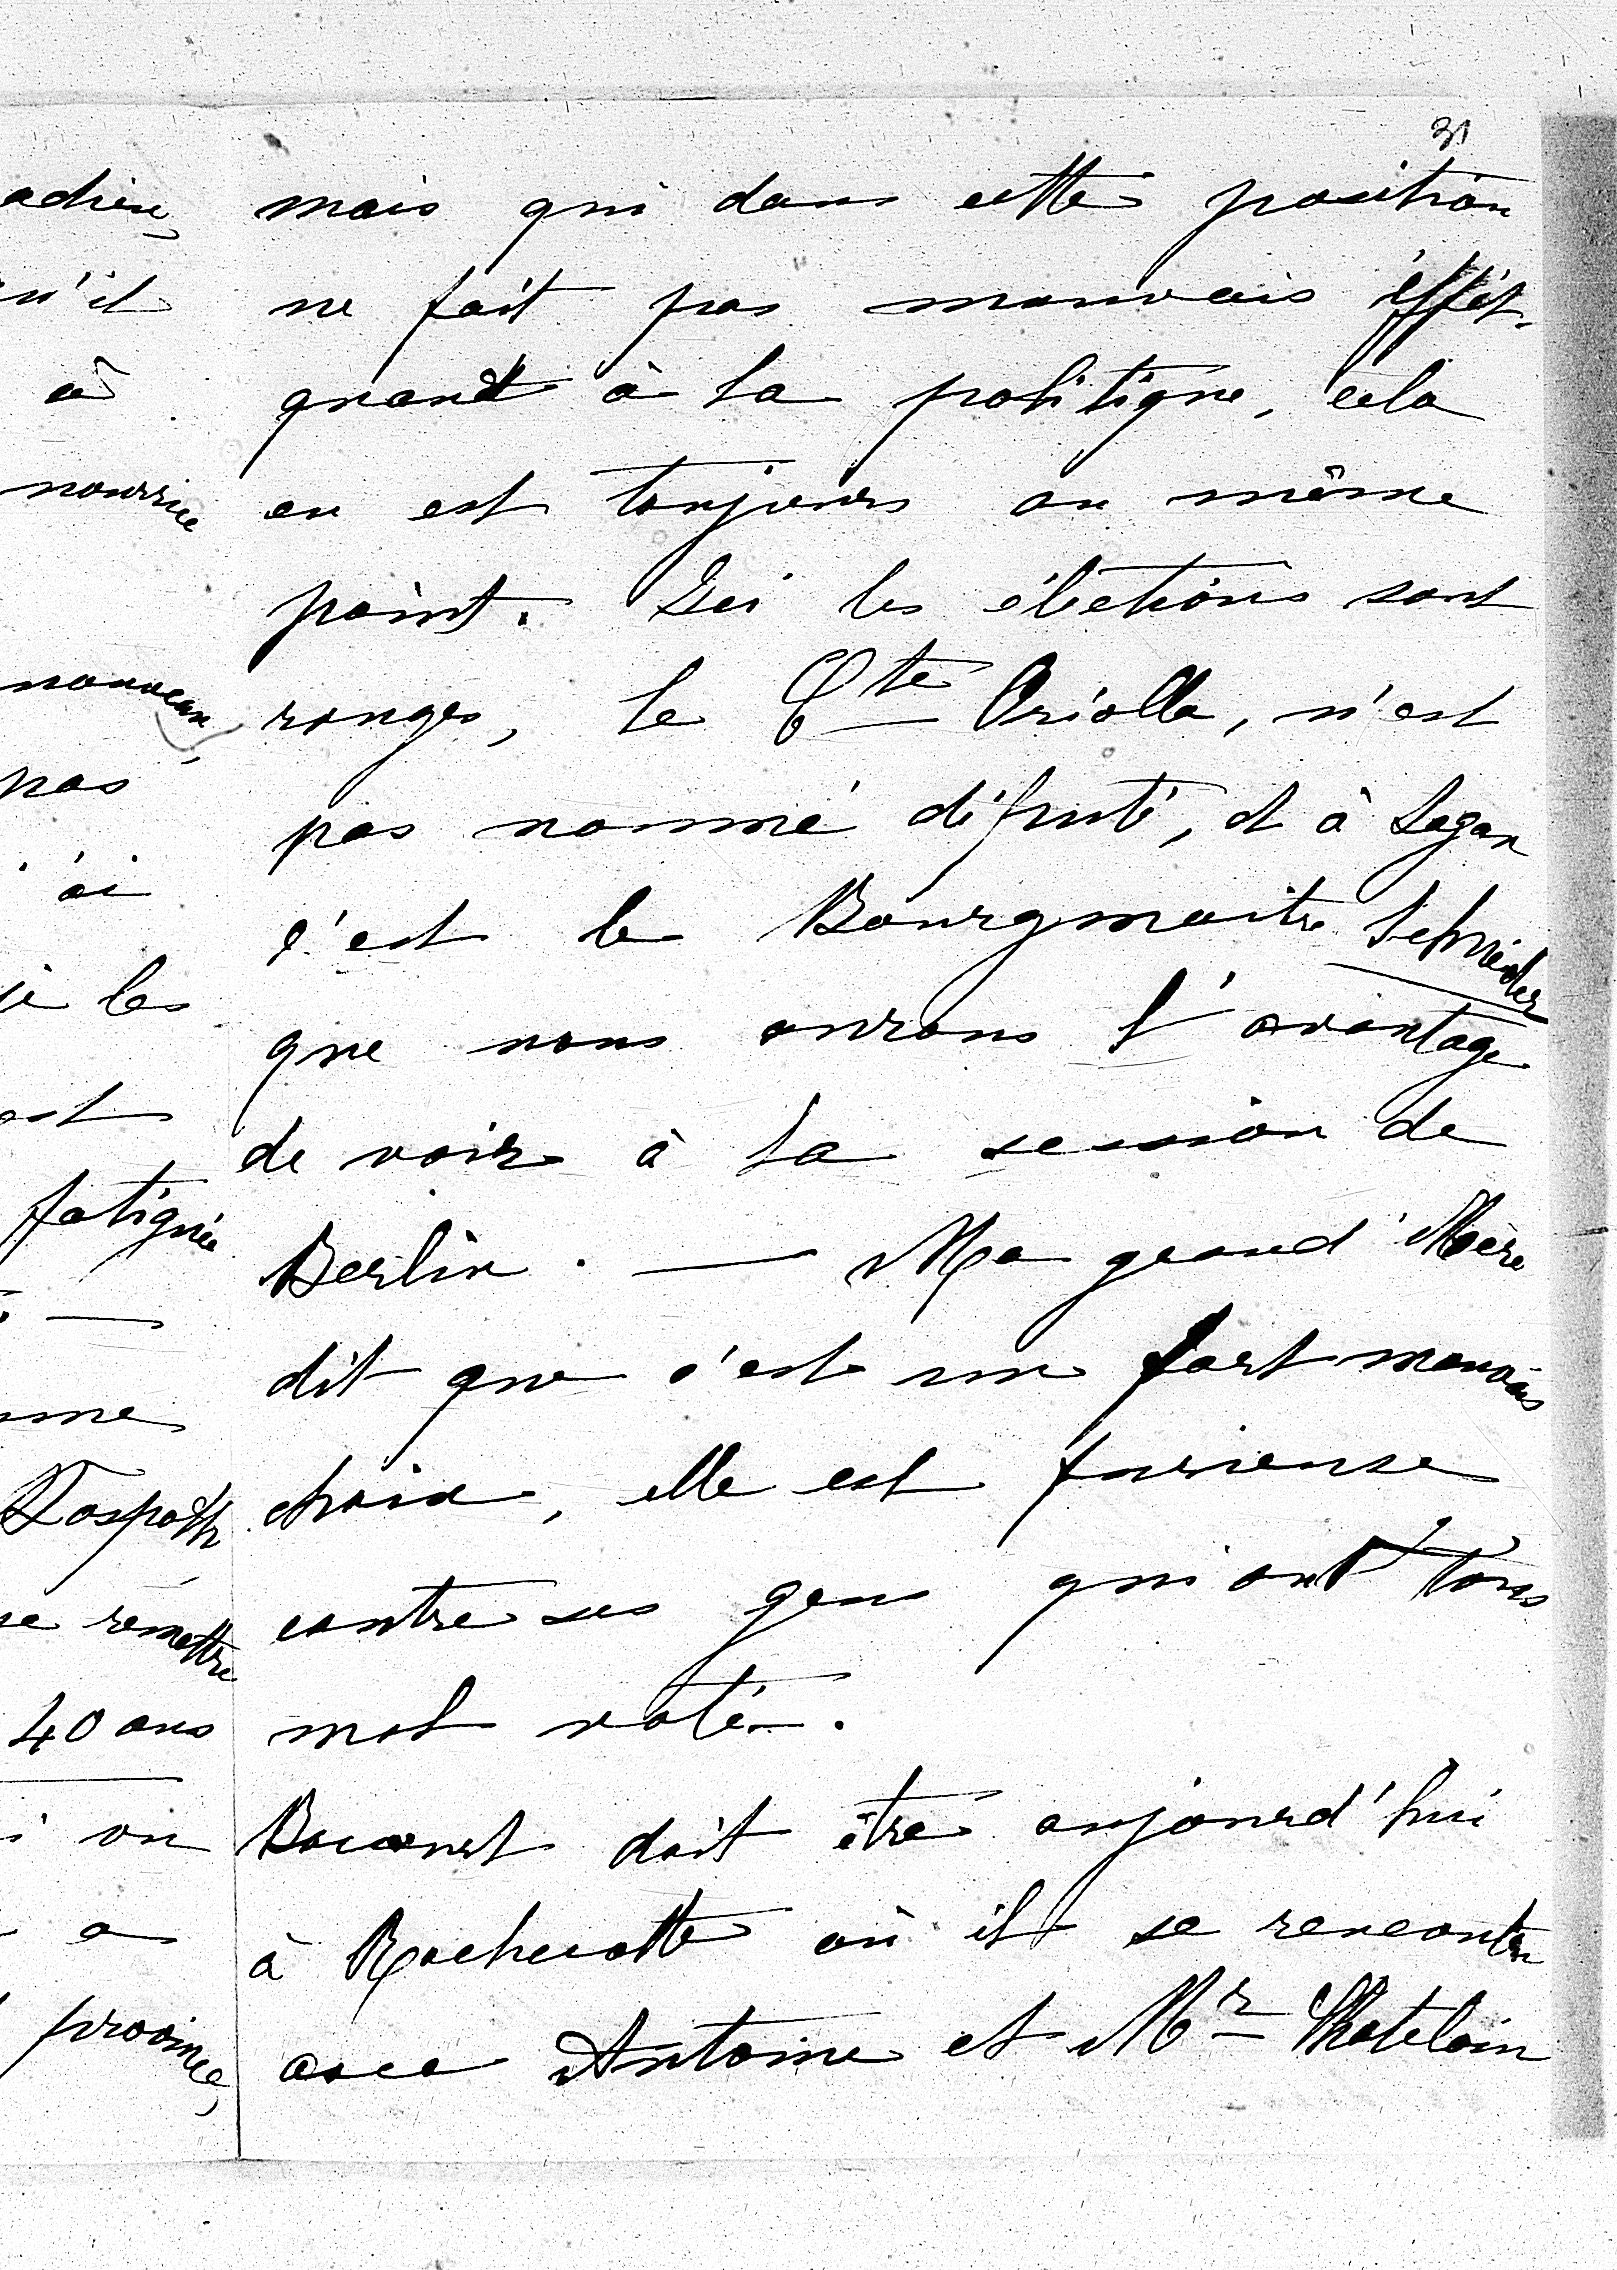 31
mais qui dans cette position
ne fait pas mauvais éffét.
quand à la politique, cela
en est toujours au même
point. Ici les éléctions sont
rouges, le Cte Oriolla, n'est
pas nommé député, et à Sagan
c'est le Bourgmaitre Schneider
que nous aurons l'avantage
de voir à la session de
Berlin. — Ma grand'Mère
dit que c'est un fort mauvais
choix, elle est furieuse
contre ses gens qui ont tous
mal voté.
doit être aujourd'hui
à Rochecotte où il se rencontre
avec Antoine et Mr Chatelain
adieu,
n'il
à
nourrice
nouveau,
pas
ai
les
est
fatiguée
me
remettre
40 ans
on
a
province,